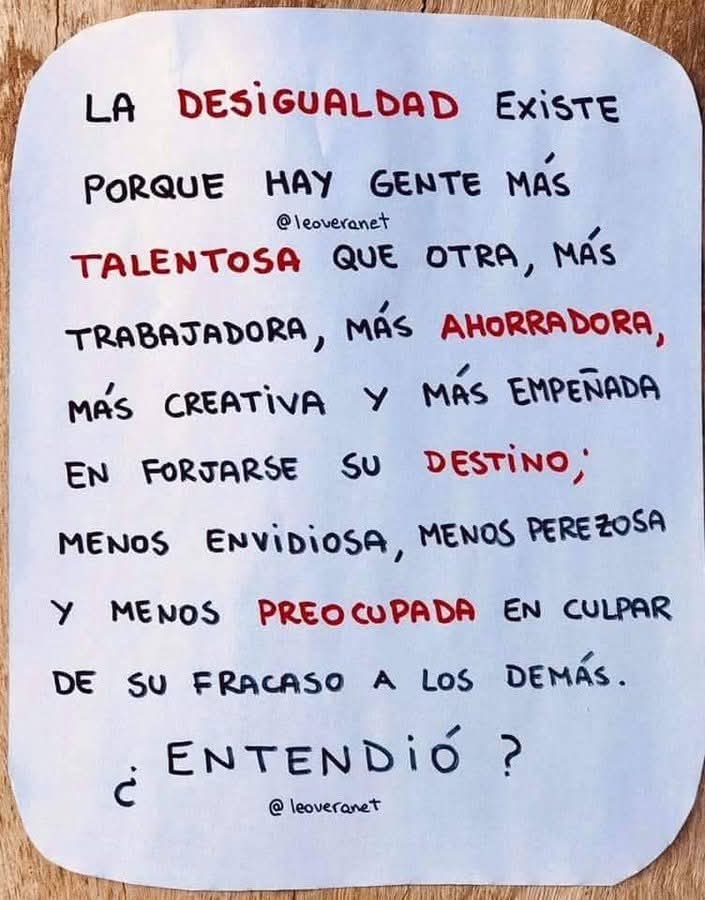 LA DESiGUALDAD EXiSTE
PORQUE HAY GENTE MÁS
@leoveranet
TALENTOSA QUE OTRA, MÁS
TRABAJADORA, MÁS AHORRADORA,
MÁS CREATiVA Y MÁS EMPEÑADA
EN FORJARSE SU DESTiNO;
MENOS ENViDiOSA, MENOS PEREZOSA
Y MENOS PREOCUPADA EN CULPAR
DE SU FRACASO A LOS DEMÁS.
¿ENTENDiÓ?
@leoveranet